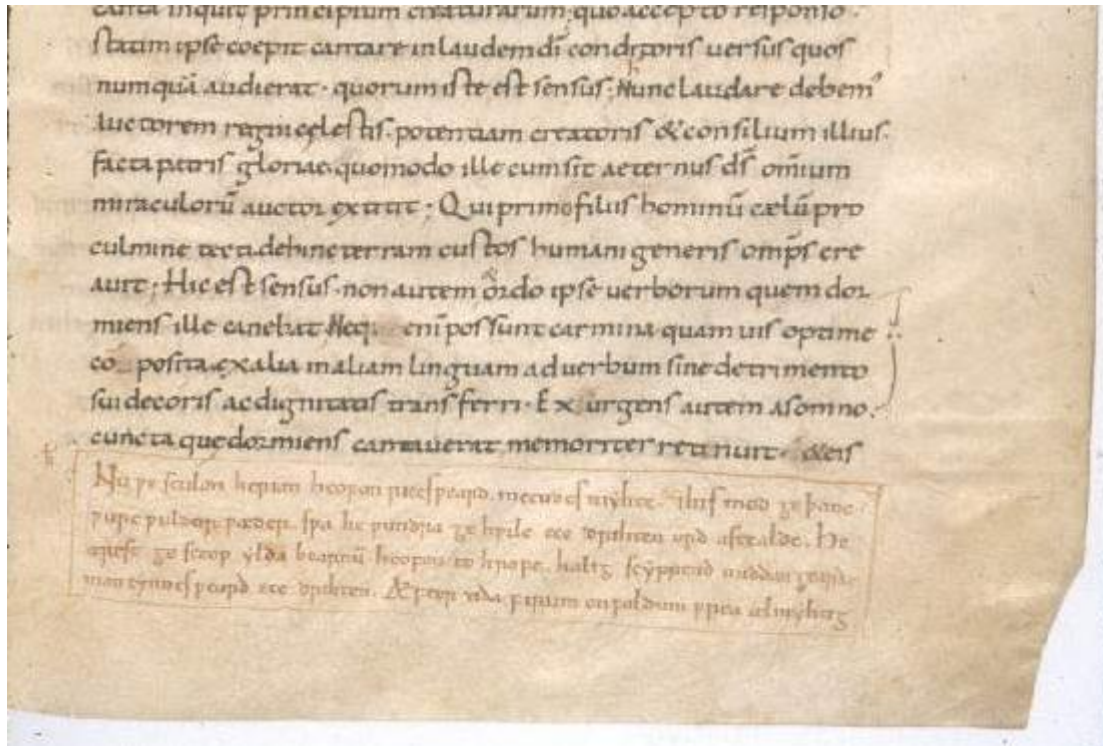 canta inquit principium creaturarum· quo accepto responso·
statim ipse coepit cantare in laudem dī conditoris uersus quos
numquā audierat· quorum iste est sensus; Nunc laudare debem᾽
auctorem regni cęlestis· potentiam creatoris &consilium illius·
facta patris gloriae· quomodo ille cum sit aeternus dˉs omīum
miraculorū auctor extitit; Qui primo filiis hominū cælū pro
culmine tecti dehinc terram custos humani generis omp̄s cre
auit; Hic est sensus· non autem ordo ipse uerborum quem dor
miens ille canebat Neque enī possunt carmina quamuis optime
co posita exalia inaliam linguam aduerbum sine detrimento
sui decoris ac dignitatis transferri· Exurgens autem asomno·
cuncta que dormiens cantauerat memoriter retinuit· &eis
Nu ƿe sculon herian heofon ricesƿeard· metudes myhte· his mod geþanc·
ƿurc ƿuldor fæder· sƿa he ƿundra gehƿilc ece drihten ord astealde· He
ærest gesceop ylda bearnū heofon to hrofe· halig scyppend middangearde
mancynnes ƿeard ece drihten· Æfter tida firum on foldum frea ælmyhtig